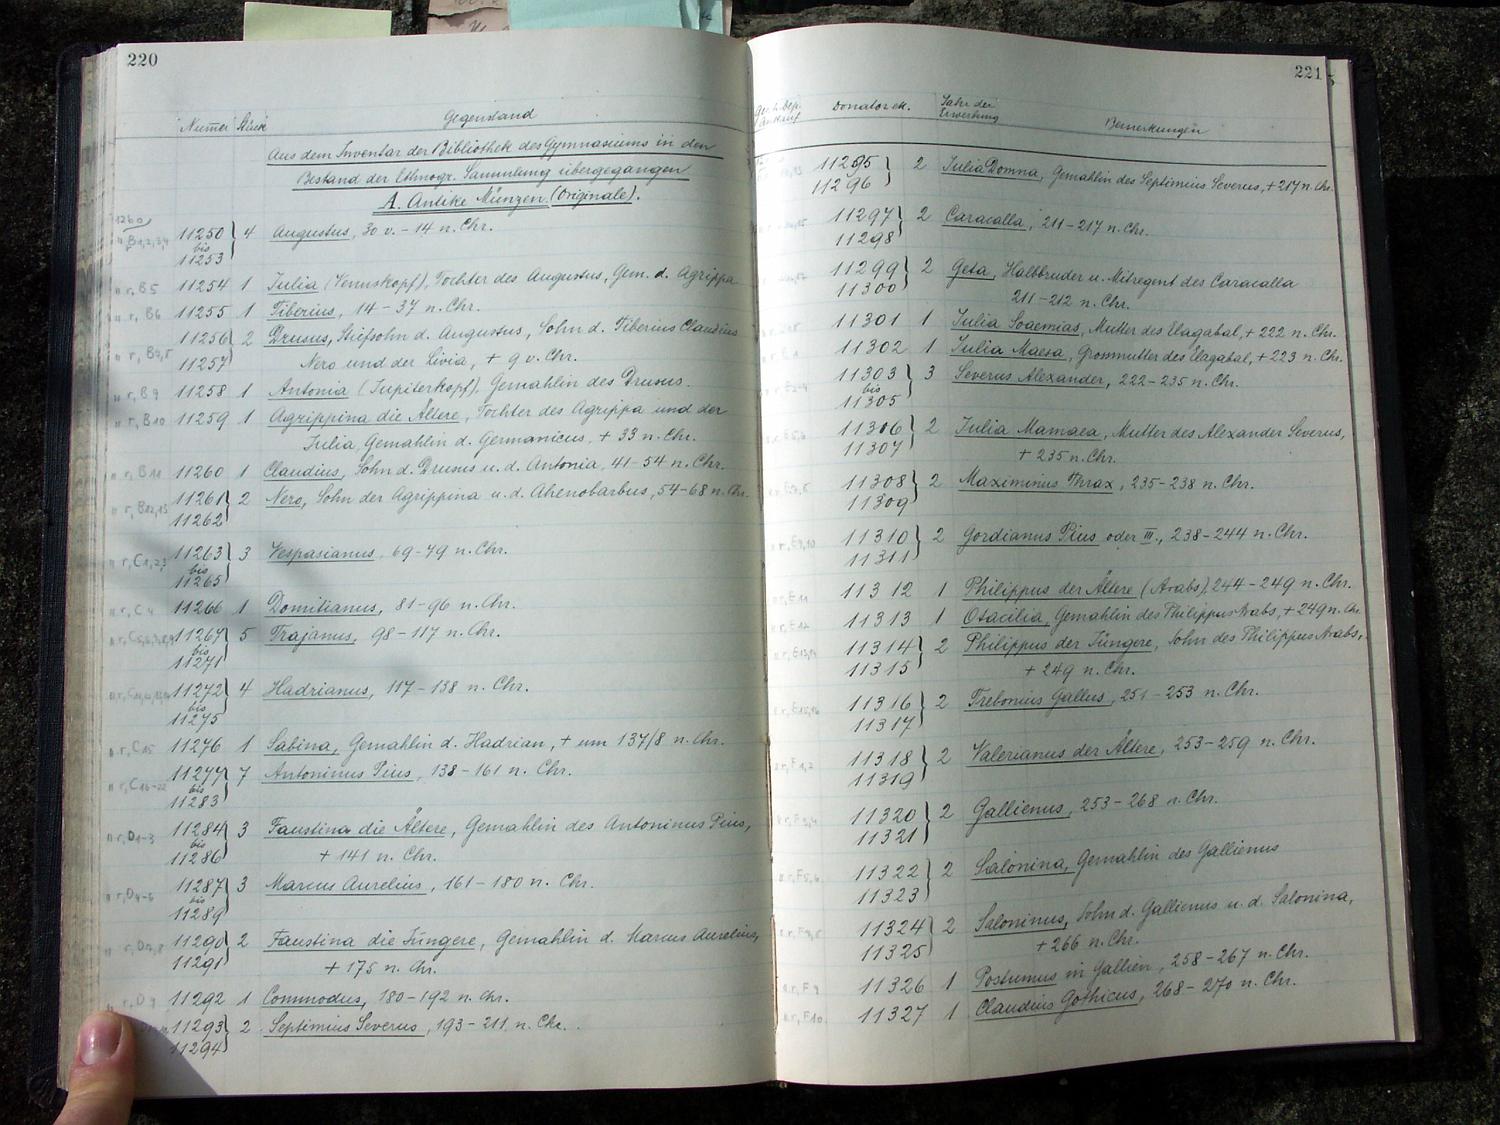 220
Numer Stück Gegenstand
Aus dem Inventar der Bibliothek des Gymnasiums in den
Bestand der Ethnogr. Sammlung übergegangen
A. Antike Münzen (Originale).
11250 bis 11253 4 Augustus, 30 v. – 14 n. Chr.
n r, B5 11254 1 Iulia (Venuskopf), Tochter des Augustus, Gem. d. Agrippa
n r, B6 11255 1 Tiberius, 14 – 37 n. Chr.
11256 2 Drusus, Stiefsohn d. Augustus, Sohn d. Tiberius Claudius
11257 Nero und der Livia, + 9 v. Chr.
n r, B9 11258 1 Antonia (Jupiterkopf), Gemahlin des Drusus.
n r, B10 11259 1 Agrippina die Ältere, Tochter des Agrippa und der
Iulia, Gemahlin d. Germanicus, + 33 n. Chr.
n r, B11 11260 1 Claudius, Sohn d. Drusus u. d. Antonia, 41–54 n. Chr.
11261 2 Nero, Sohn der Agrippina u. d. Ahenobarbus, 54–68 n. Chr.
11262
n r, C1,2,3 11263 bis 11265 3 Vespasianus, 69–79 n. Chr.
n r, C4 11266 1 Domitianus, 81–96 n. Chr.
11267 bis 11271 5 Trajanus, 98–117 n. Chr.
11272 bis 11275 4 Hadrianus, 117–138 n. Chr.
n r, C15 11276 1 Sabina, Gemahlin d. Hadrian, + um 137/8 n. Chr.
n r, C16-22 11277 bis 11283 7 Antoninus Pius, 138–161 n. Chr.
n r, D1-3 11284 bis 11286 3 Faustina die Ältere, Gemahlin des Antoninus Pius,
+ 141 n. Chr.
n r, D4-6 11287 bis 11289 3 Marcus Aurelius, 161–180 n. Chr.
n r, D7,8 11290 2 Faustina die Jüngere, Gemahlin d. Marcus Aurelius,
11291 + 175 n. Chr.
r, D9 11292 1 Commodus, 180–192 n. Chr.
11293 2 Septimius Severus, 193–211. n. Chr.
11294
221
Donator ek. Jahr der Erwerbung Bemerkungen
11295 2 Iulia Domna, Gemahlin des Septimius Severus, + 217 n. Chr.
11296
11297 2 Caracalla, 211–217 n. Chr.
11298
11299 2 Geta, Halbbruder u. Mitregent des Caracalla
11300 211–212 n. Chr.
11301 1 Iulia Soaemias, Mutter des Elagabal, + 222 n. Chr.
11302 1 Iulia Maesa, Grossmutter des Elagabal, + 223 n. Chr.
11303 bis 11305 3 Severus Alexander, 222–235 n. Chr.
11306 2 Iulia Mamaea, Mutter des Alexander Severus,
11307 + 235 n. Chr.
11308 2 Maximinus Thrax, 235–238 n. Chr.
11309
11310 2 Gordianus Pius oder III., 238–244 n. Chr.
11311
11312 1 Philippus der Ältere (Arabs), 244–249 n. Chr.
11313 1 Otacilia, Gemahlin des Philippus Arabs, + 249 n. Chr.
11314 2 Philippus der Jüngere, Sohn des Philippus Arabs,
11315 + 249 n. Chr.
11316 2 Trebonius Gallus, 251–253 n. Chr.
11317
11318 2 Valerianus der Ältere, 253–259 n. Chr.
11319
11320 2 Gallienus, 253–268 n. Chr.
11321
11322 2 Salonina, Gemahlin des Gallienus
11323
11324 2 Saloninus, Sohn d. Gallienus u. d. Salonina,
11325 + 266 n. Chr.
11326 1 Postumus in Gallien, 258–267 n. Chr.
11327 1 Claudius Gothicus, 268–270 n. Chr.